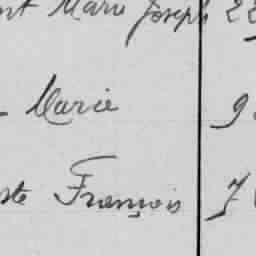 Marie Joseph 22
Marie 9
François 7